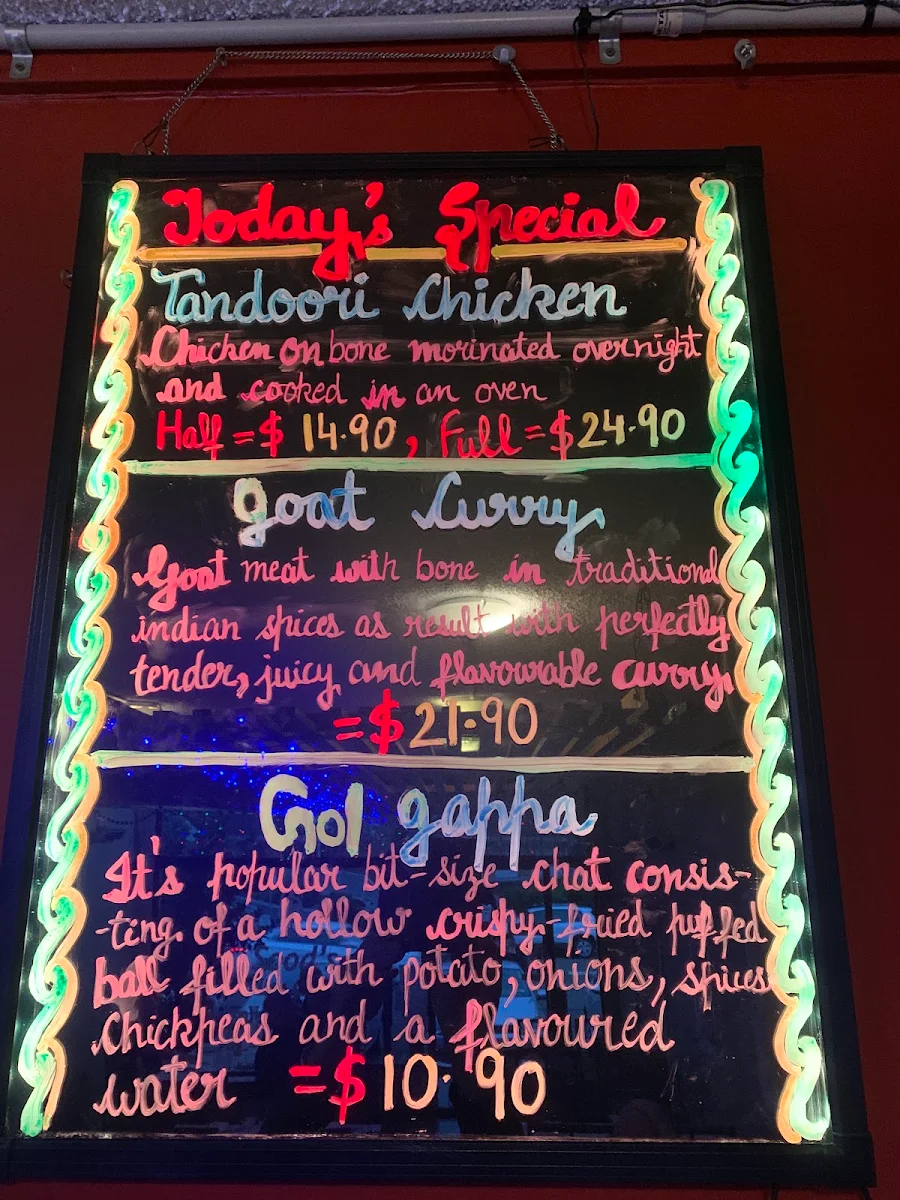 Today's Special
Tandoori Chicken
Chicken on bone morinated overnight
and cooked in an oven
Half = $ 14.90, Full = $24.90
Goat Curry
Goat meat with bone in traditional
indian spices as result with perfectly
tender, juicy and flavourable curry.
= $ 21.90
Gol gappa
It's popular bit-size chat consis-
-ting. of a hollow crispy-fried puffed
ball filled with potato, onions, spices
Chickpeas and a flavoured
water = $ 10.90